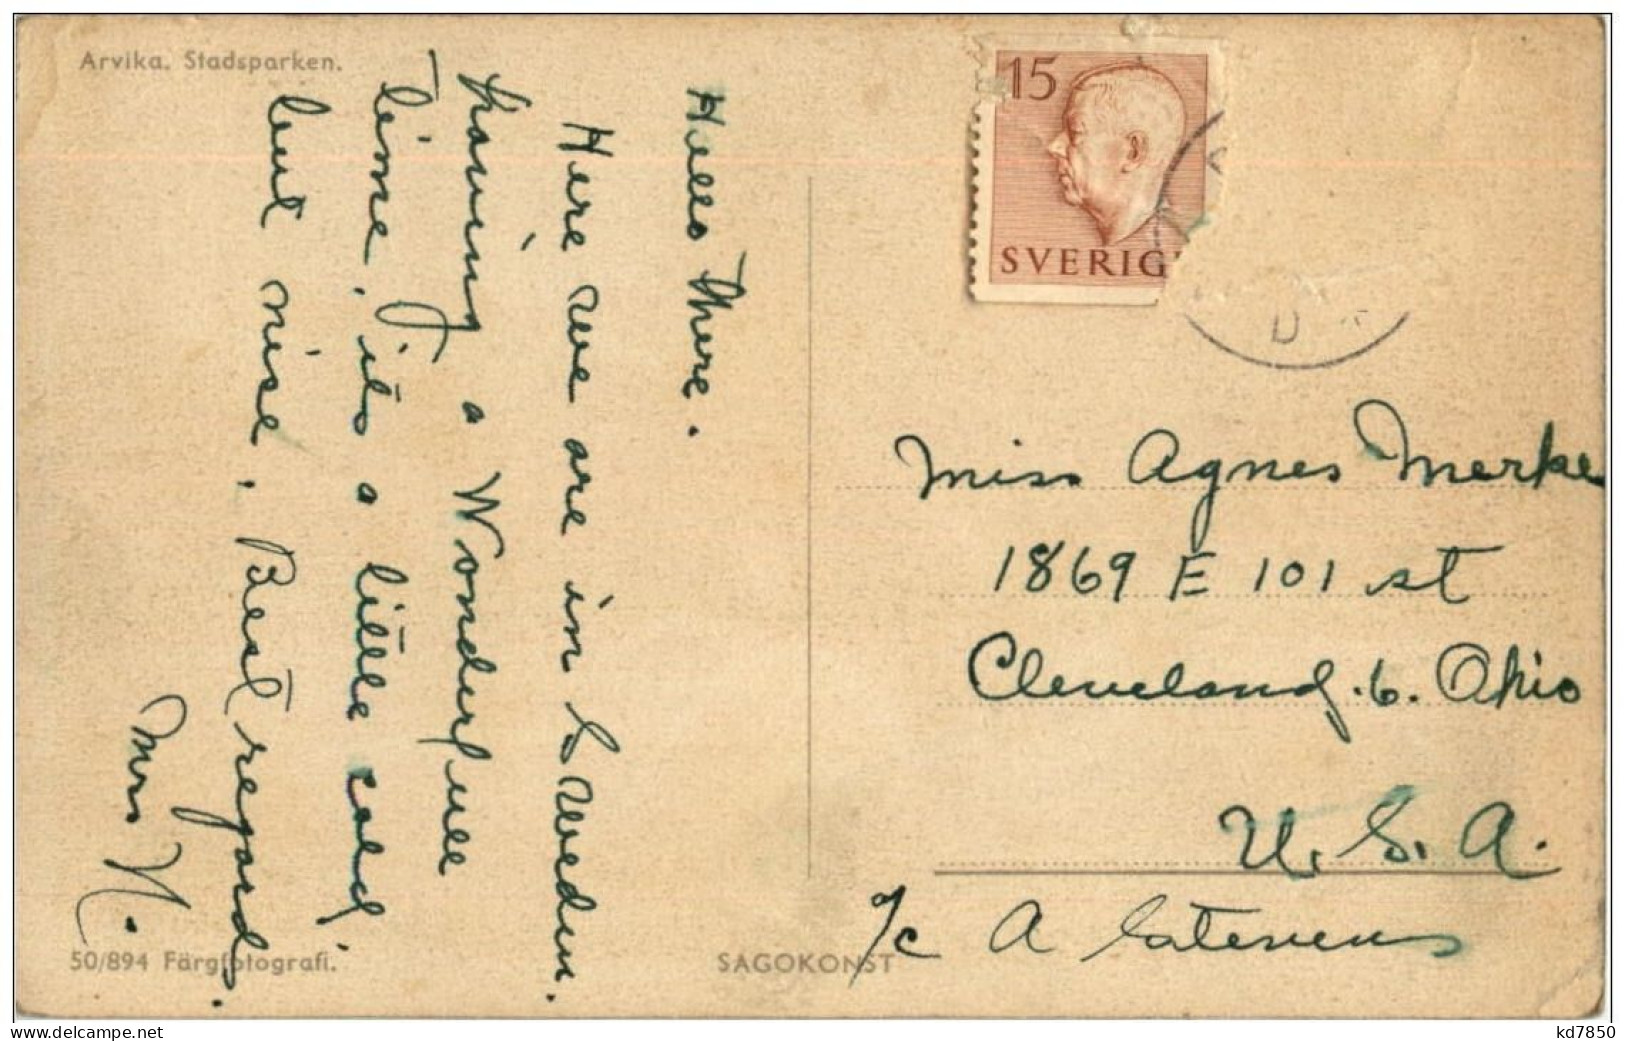 Arvika. Stadsparken.
Hello There.
Here we are in Sweden.
having a Wonderful
Time, its a little cold,
but nice. Best regards.
Mrs N.
15
SVERIG
D
Miss Agnes Merke
1869 E 101 st
Cleveland, 6. Ohio
U. S. A.
℅ A Stevens
50/894 Färgfotografi.
SAGOKONST
www.delcampe.net
kd7850